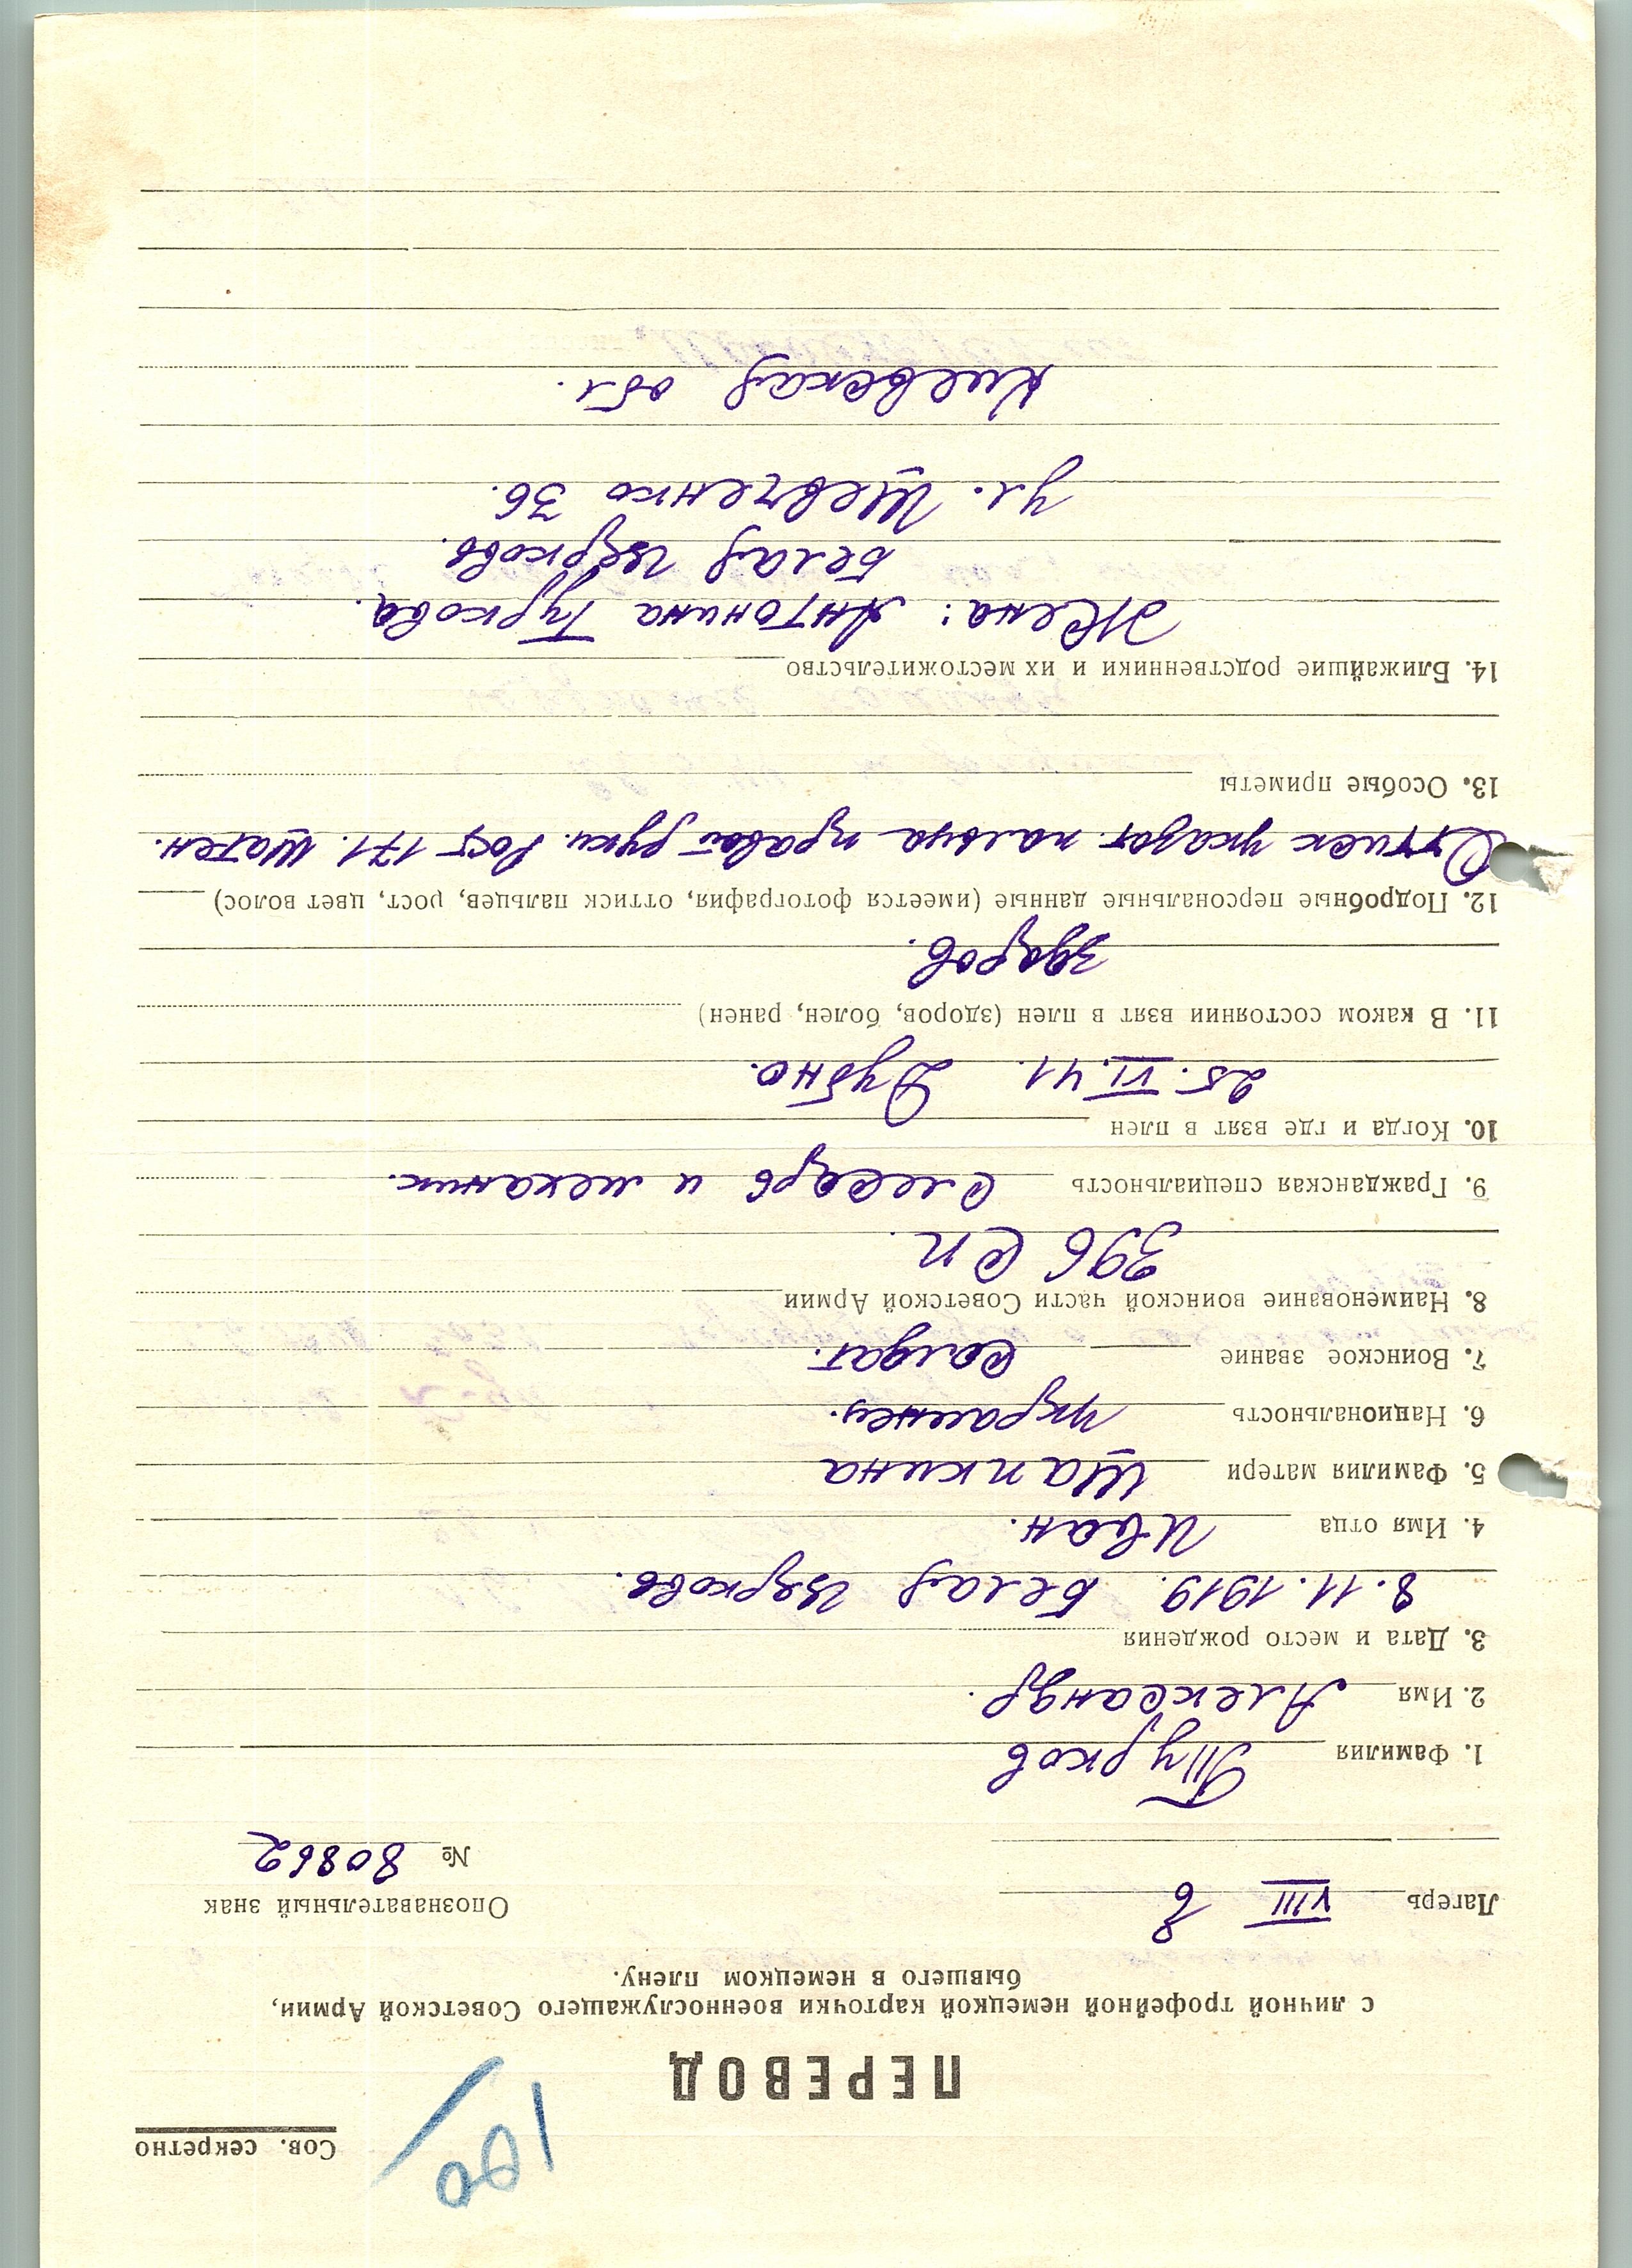 Сов. секретно
ПЕРЕВОД
с личной трофейной немецкой карточки военнослужащего Советской Армии,
бывшего в немецком плену.
Лагерь VIII в
Опознавательный знак
№ 80862
1. Фамилия Турков
2. Имя Александр.
3. Дата и место рождения
8.11.1919. Белая Церковь.
4. Имя отца Иван.
5. Фамилия матери Шапкина
6. Национальность украинец.
7. Воинское звание Солдат.
8. Наименование воинской части Советской Армии
396 СП.
9. Гражданская специальность Слесарь и механик.
10. Когда и где взят в плен
25.VI.41. Дубно.
11. В каком состоянии взят в плен (здоров, болен, ранен)
здоров.
12. Подробные персональные данные (имеется фотография, оттиск пальцев, рост, цвет волос)
Оттиск указат. пальца правой руки. Рост 171. Шатен.
13. Особые приметы
14. Ближайшие родственники и их местожительство
Жена: Антонина Туркова.
Белая Церковь.
ул. Шевченко 36.
Киевская обл.